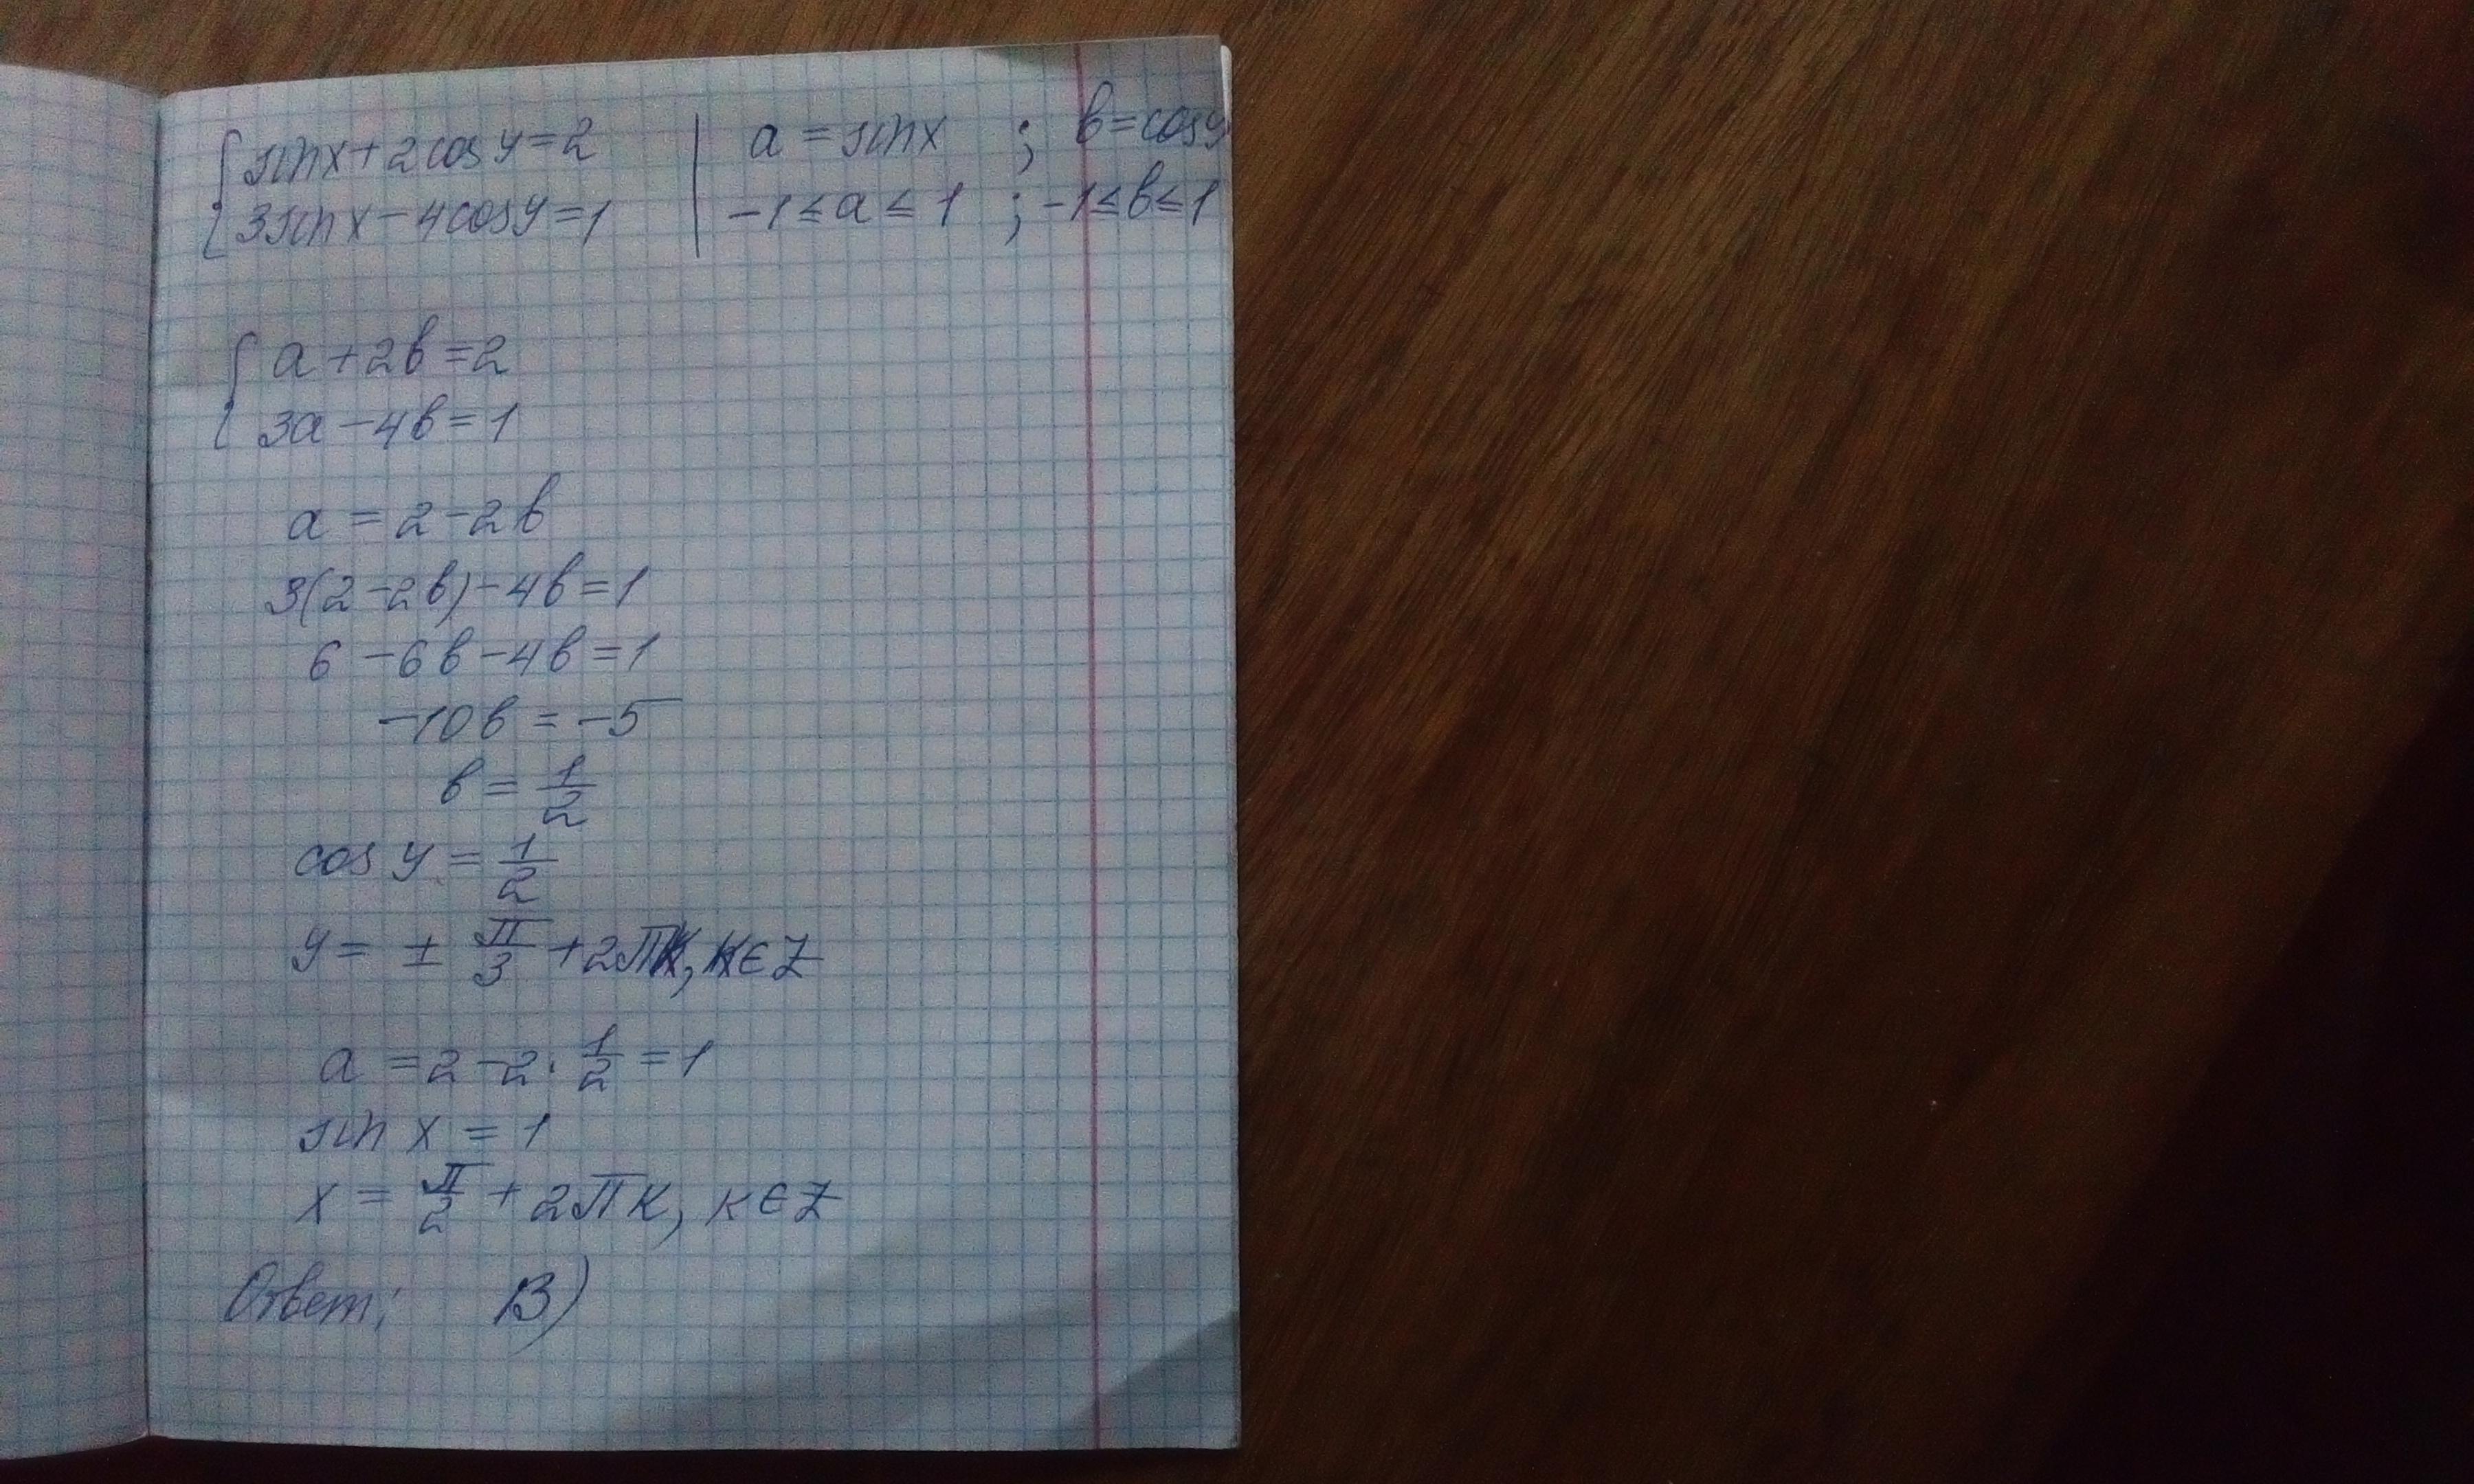 { sinx + 2cosy = 2 | a = sinx ; b = cosy
{ 3sinx - 4cosy = 1 | -1 ≤ a ≤ 1 ; -1 ≤ b ≤ 1
{ a + 2b = 2
{ 3a - 4b = 1
a = 2 - 2b
3(2 - 2b) - 4b = 1
6 - 6b - 4b = 1
-10b = -5
b = 1/2
cos y = 1/2
y = ± π/3 + 2πk, k ∈ Z
a = 2 - 2 · 1/2 = 1
sin x = 1
x = π/2 + 2πk, k ∈ Z
Ответ: В)